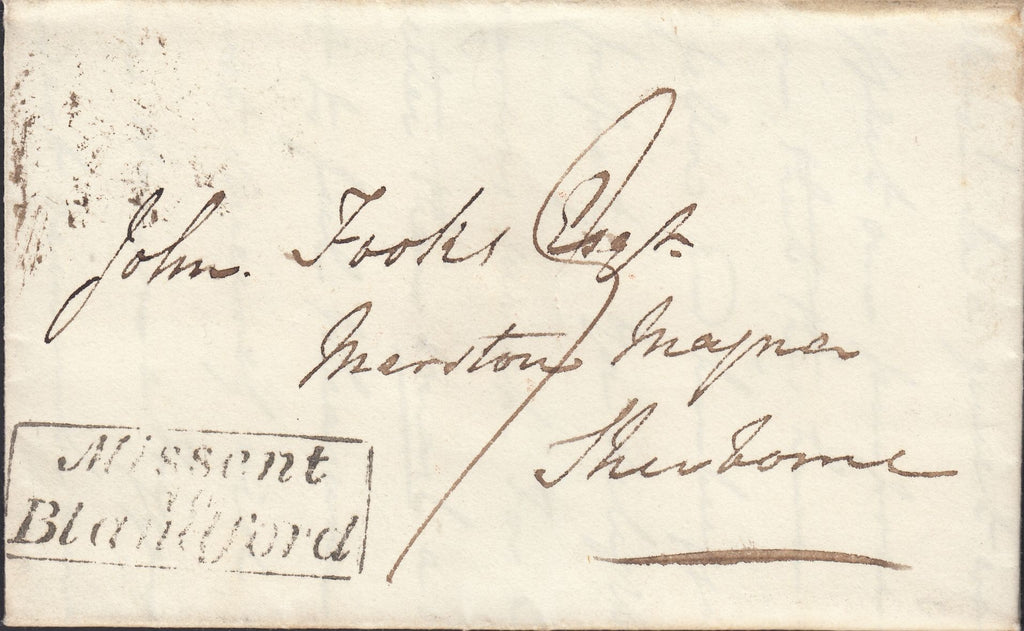 John. Fooks Esqr.
Marston Magna
Sherborne
Missent
to
Blandford